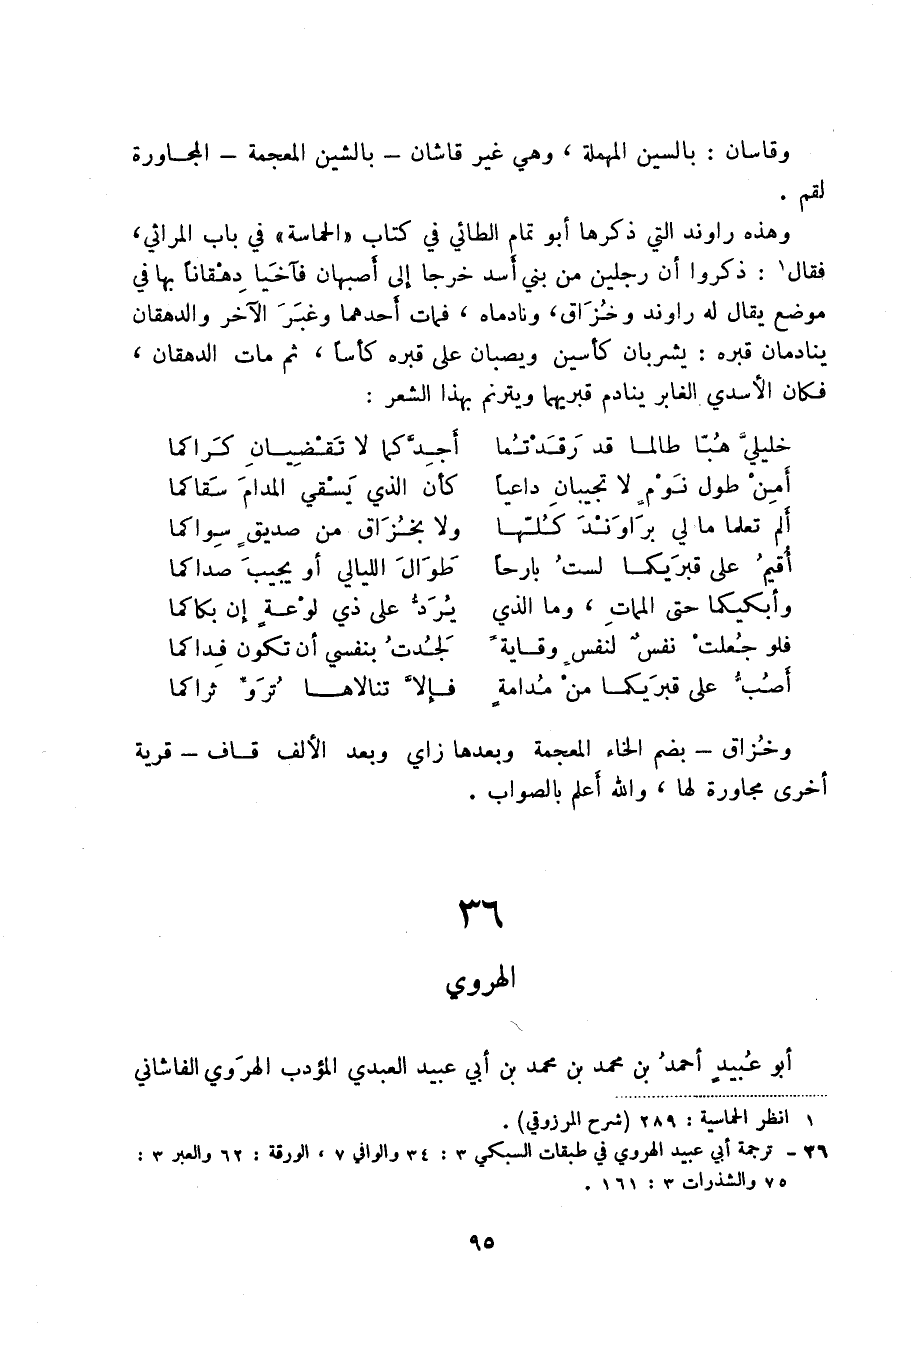 وقاسان : بالسين المهملة ، وهي غير قاشان – بالشين المعجمة – المجـاورة
لقم .
وهذه راوند التي ذكرها أبو تمام الطائي في كتاب «الحماسة» في باب المراثي،
فقال١ : ذكروا أن رجلين من بني أسد خرجا إلى أصبهان فآخَيا دِهْقاناً بها في
موضع يقال له راوند وخُزَاق، ونادماه ، فمات أحدهما وغَبَرَ الآخر والدهقان
ينادمان قبره : يشربان كأسين ويصبان على قبره كأساً ، ثم مات الدهقان ،
فكان الأسدي الغابر ينادم قبريهما ويترنم بهذا الشعر :
خليليَّ هُبّا طالمـا قد رَقَدْتُما أَجِدَّكما لا تَقْضِيـانِ كَراكما
أَمِنْ طول نَوْمٍ لا تجيبانِ داعياً كأن الذي يَسْقي المدامَ سَقاكما
ألم تعلما ما لي بِرَاوَنْدَ كُلّهـا ولا بِخُزَاق من صديقٍ سِواكما
أُقيمُ على قبرَيكـما لستُ بارحاً طَوَالَ الليالي أو يجيبَ صداكما
وأبكيكما حتى المماتِ ، وما الذي يَرُدُّ على ذي لوْعةٍ إن بكاكما
فلو جُعلتْ نفسٌ لنفسٍ وقـايةً لجُدتُ بنفسي أن تكون فِداكما
أصُبُّ على قبرَيكـما منْ مُدامةٍ فـإلاَّ تنالاهـا تُرَوِّ ثراكما
وخُزاق – بضم الخاء المعجمة وبعدها زاي وبعد الألف قـاف – قرية
أخرى مجاورة لها ، والله أعلم بالصواب .
٣٦
الهروي
أبو عُبيدٍ أحمدُ بن محمد بن محمد بن أبي عبيد العبدي المؤدب الهرَوي الفاشاني
١ انظر الحماسية : ٢٨٩ (شرح المرزوقي) .
٣٦ – ترجمة أبي عبيد الهروي في طبقات السبكي ٣ : ٣٤ والوافي ٧ ، الورقة : ٦٢ والعبر ٣ :
٧٥ والشذرات ٣ : ١٦١ .
٩٥